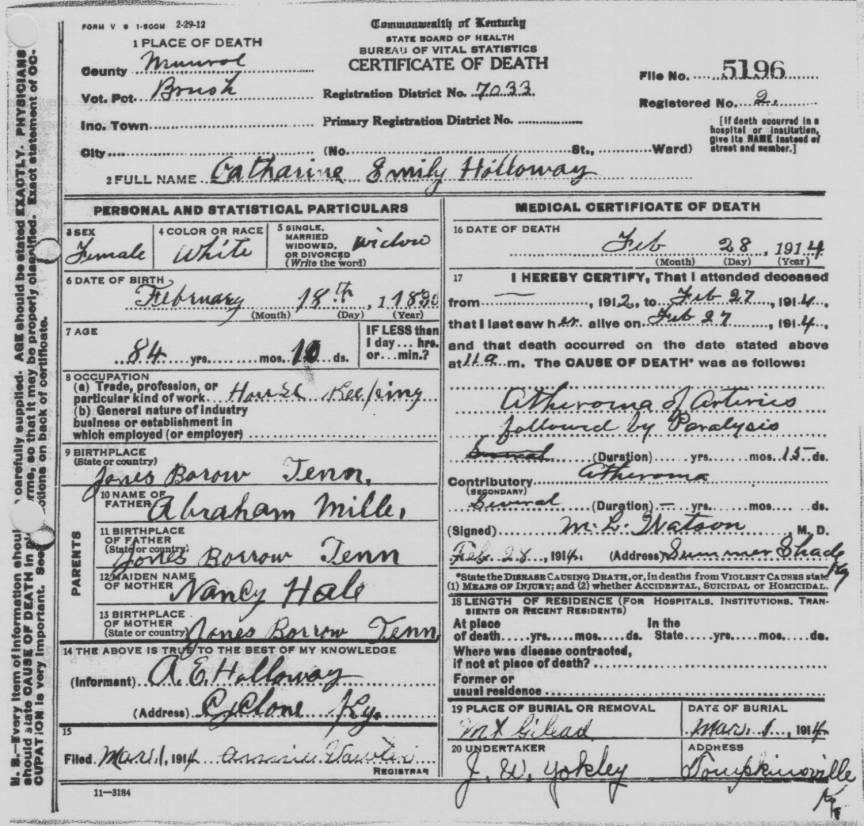 FORM V S 1-500M 2-29-12
Commonwealth of Kentucky
STATE BOARD OF HEALTH
BUREAU OF VITAL STATISTICS
CERTIFICATE OF DEATH
1 PLACE OF DEATH
County Munrol
Vot. Pct. Brush
Inc. Town
City (No. St., Ward)
Registration District No. 7033
Primary Registration District No.
File No. 5196
Registered No. 2.
[If death occurred in a
hospital or institution,
give its NAME instead of
street and number.]
2 FULL NAME Catharine Emily Holloway
PERSONAL AND STATISTICAL PARTICULARS
3 SEX
Female
4 COLOR OR RACE
White
5 SINGLE,
MARRIED
WIDOWED,
OR DIVORCED
(Write the word)
widow
6 DATE OF BIRTH
February 18th, 1830
(Month) (Day) (Year)
7 AGE
84 yrs. mos. 10 ds.
IF LESS than
1 day... hrs.
or... min.?
8 OCCUPATION
(a) Trade, profession, or
particular kind of work House Keeping
(b) General nature of industry
business or establishment in
which employed (or employer)
9 BIRTHPLACE
(State or country)
Jones Borow Tenn.
PARENTS
10 NAME OF
FATHER Abraham Miller
11 BIRTHPLACE
OF FATHER
(State or country) Jones Borrow Tenn
12 MAIDEN NAME
OF MOTHER Nancy Hale
13 BIRTHPLACE
OF MOTHER
(State or country) Jones Borrow Tenn
14 THE ABOVE IS TRUE TO THE BEST OF MY KNOWLEDGE
(Informant) A. E. Holloway
(Address) Cyclone Ky.
15
Filed Mar. 1, 1914
REGISTRAR
11—3184
MEDICAL CERTIFICATE OF DEATH
16 DATE OF DEATH
Feb 28, 1914
(Month) (Day) (Year)
17 I HEREBY CERTIFY, That I attended deceased
from —, 1912, to Feb 27, 1914,
that I last saw her alive on Feb 27, 1914,
and that death occurred on the date stated above
at 11 a m. The CAUSE OF DEATH* was as follows:
Atheroma of Arteries
followed by Paralysis
Several (Duration) yrs. mos. 15 ds.
Contributory Atheroma
(SECONDARY)
Several (Duration) — yrs. mos. ds.
(Signed) M. L. Watson M. D.
Feb. 28, 1914. (Address) Summer Shade
Ky
*State the DISEASE CAUSING DEATH, or, in deaths from VIOLENT CAUSES state
(1) MEANS OF INJURY; and (2) whether ACCIDENTAL, SUICIDAL or HOMICIDAL.
18 LENGTH OF RESIDENCE (FOR HOSPITALS, INSTITUTIONS, TRAN-
SIENTS OR RECENT RESIDENTS)
At place In the
of death yrs. mos. ds. State yrs. mos. ds.
Where was disease contracted,
if not at place of death?
Former or
usual residence
19 PLACE OF BURIAL OR REMOVAL
Mt Gilead
DATE OF BURIAL
Mar. 1, 1914
20 UNDERTAKER
J. W. Yokley
ADDRESS
Tompkinsville
Ky
N. B.—Every item of information should carefully supplied. AGE should be stated EXACTLY. PHYSICIANS
should state CAUSE OF DEATH in terms, so that it may be properly classified. Exact statement of OC-
CUPATION is very important. See on back of certificate.